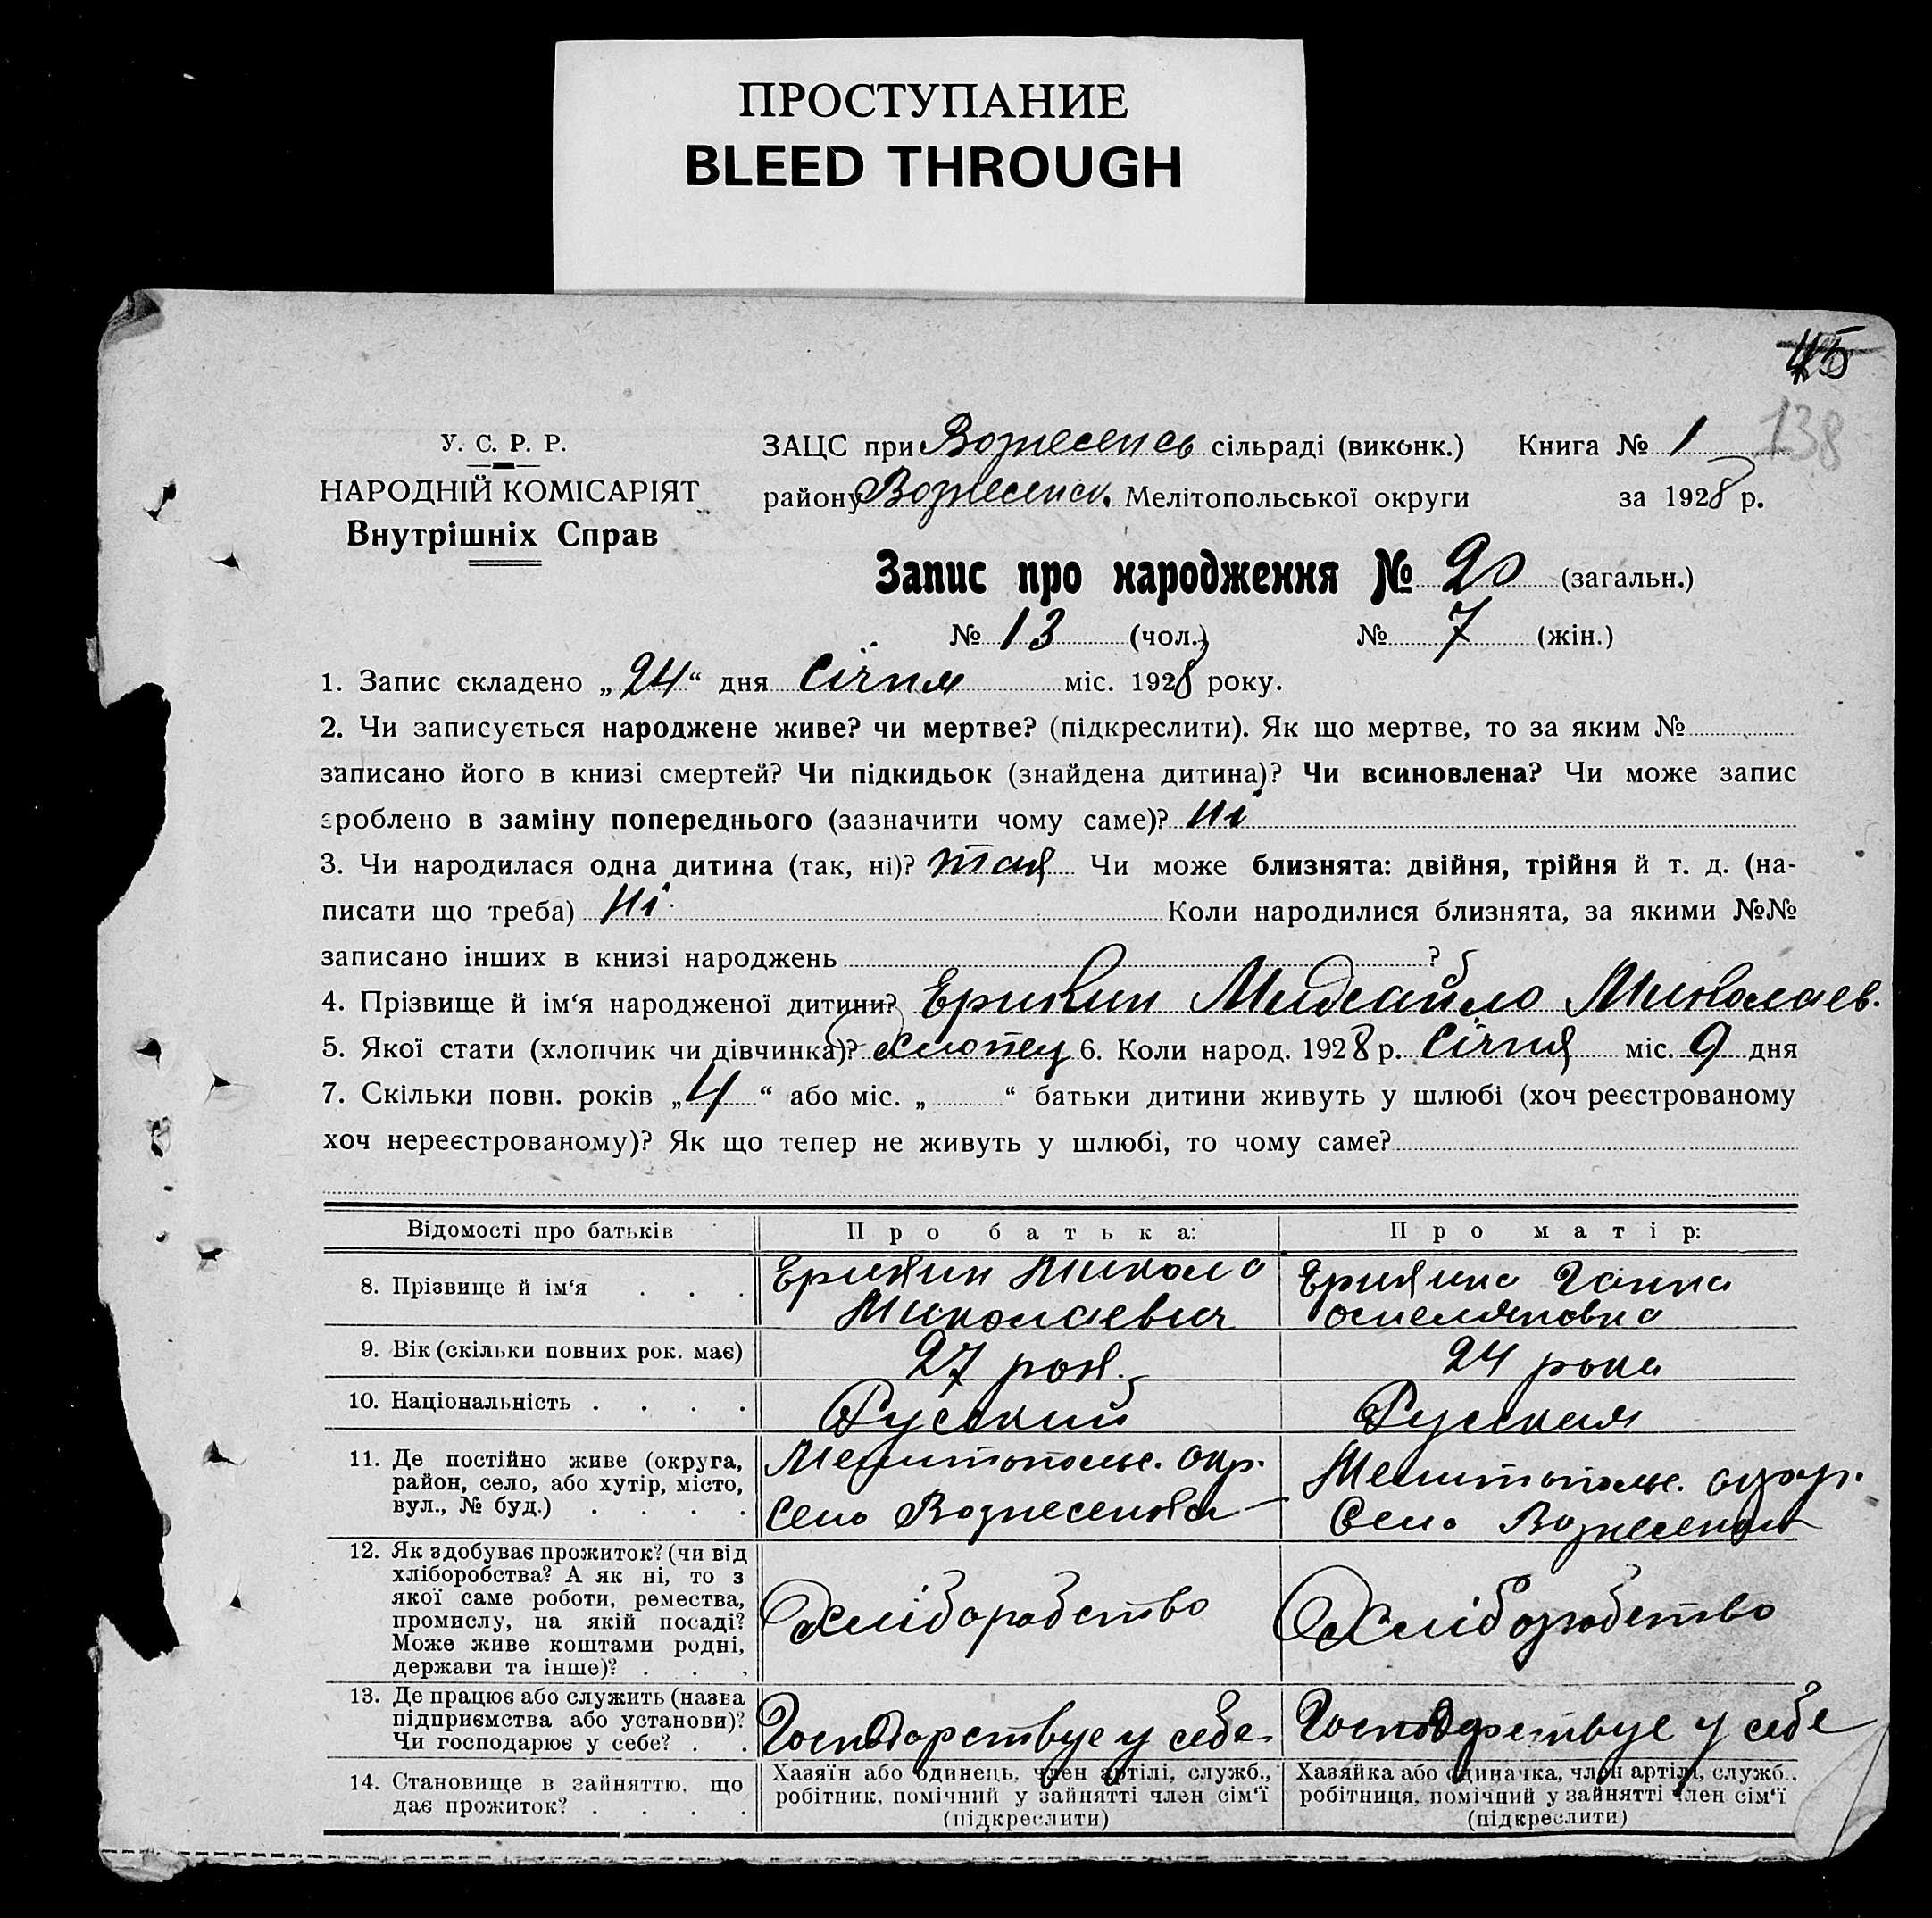 ПРОСТУПАНИЕ
BLEED THROUGH
45
138
У. С. Р. Р.
НАРОДНІЙ КОМІСАРІЯТ
Внутрішніх Справ
ЗАЦС при Вознесенсь сільраді (виконк.) Книга № 1
району Вознесенс. Мелітопольської округи за 1928 р.
Запис про народження № 20 (загальн.)
№ 13 (чол.) № 7 (жін.)
1. Запис складено „24“ дня Січня міс. 1928 року.
2. Чи записується народжене живе? чи мертве? (підкреслити). Як що мертве, то за яким №
записано його в книзі смертей? Чи підкидьок (знайдена дитина)? Чи всиновлена? Чи може запис
зроблено в заміну попереднього (зазначити чому саме)? ні
3. Чи народилася одна дитина (так, ні)? так Чи може близнята: двійня, трійня й т. д. (на-
писати що треба) ні Коли народилися близнята, за якими №№
записано інших в книзі народжень ?
4. Прізвище й ім‘я народженої дитини? Михайло Миколаев.
5. Якої стати (хлопчик чи дівчинка)? Хлопец 6. Коли народ. 1928 р. Січня міс. 9 дня
7. Скільки повн. років „4“ або міс. „ “ батьки дитини живуть у шлюбі (хоч реєстрованому
хоч нереєстрованому)? Як що тепер не живуть у шлюбі, то чому саме?
Відомості про батьків
Про батька:
Про матір:
8. Прізвище й ім‘я . . .
Микола
Миколаевич
Ганна
Омеляновна
9. Вік (скільки повних рок. має)
27 рок.
24 рока
10. Національність . . . .
Русский
Русская
11. Де постійно живе (округа,
район, село, або хутір, місто,
вул., № буд.) . . . .
Мелитопольс. окр.
Село Вознесенка
Мелитопольс. окр.
Село Вознесенка
12. Як здобуває прожиток? (чи від
хліборобства? А як ні, то з
якої саме роботи, ремества,
промислу, на якій посаді?
Може живе коштами родні,
держави та інше)? . . .
Хліборобство
Хліборобство
13. Де працює або служить (назва
підприємства або установи)?
Чи господарює у себе? . .
Господарствує у себе
Господарствує у себе
14. Становище в зайняттю, що
дає прожиток? . . . .
Хазяїн або одинець, член артілі, служб.,
робітник, помічний у зайнятті член сім‘ї
(підкреслити)
Хазяйка або одиначка, член артілі, служб.,
робітниця, помічний у зайнятті член сім‘ї
(підкреслити)